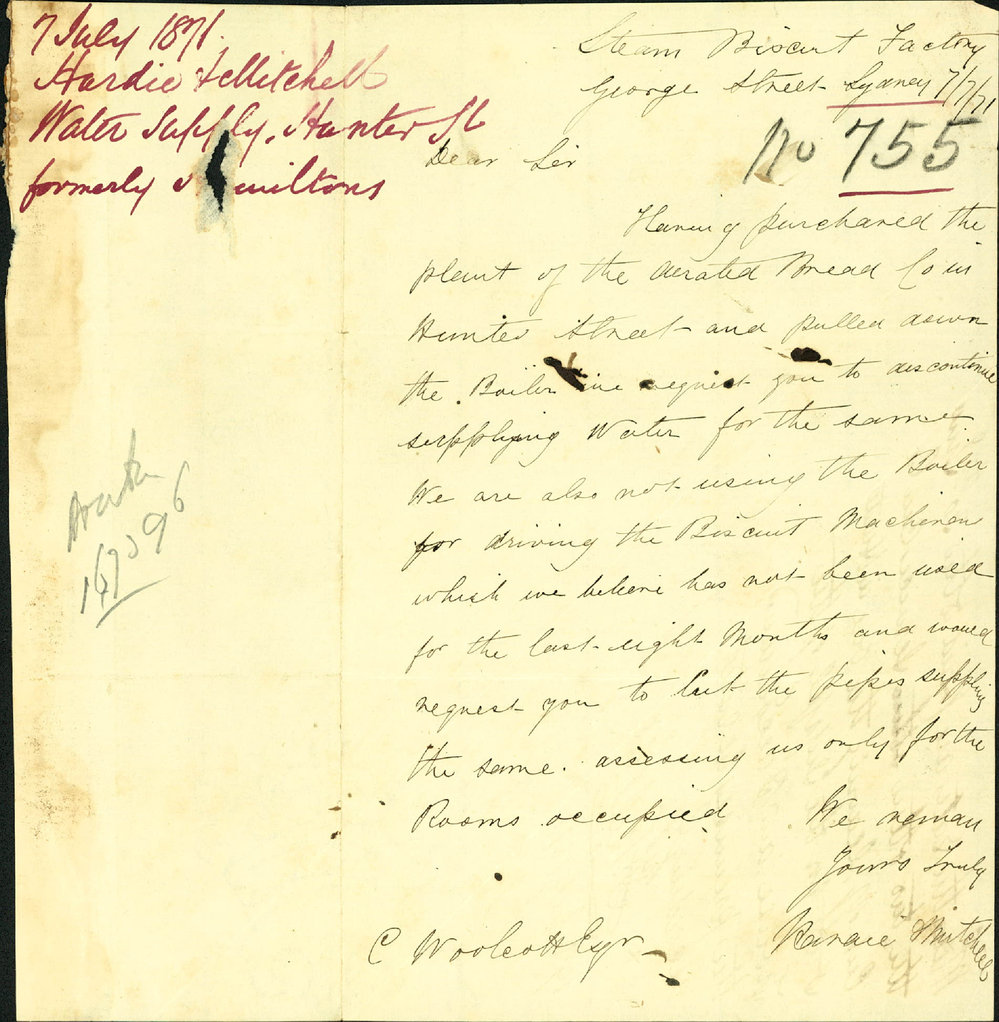 7 July 1871.
Hardie & Mitchell
Water Supply, Hunter St
formerly miltons
Steam Biscuit Factory
George Street Sydney 7/7/71
No 755
Dear Sir
Having purchased the
plant of the Aerated Bread Co in
Hunter Street and pulled down
the Boiler we request you to discontinue
supplying Water for the same.
We are also not using the Boiler
for driving the Biscuit Machinery
which we believe has not been used
for the last eight Months and would
request you to Cut the pipes suppling
the same. assessing us only for the
Rooms occupied We remain
Yours Truly
Hardie & Mitchell
C Woolcott Esqr